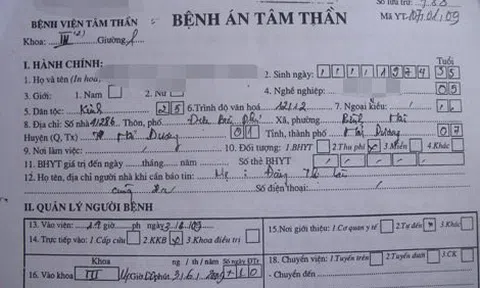 Số lưu trữ:
BỆNH VIỆN TÂM THẦN BỆNH ÁN TÂM THẦN
Mã YT
Khoa: III Giường
I. HÀNH CHÍNH: Tuổi
1. Họ và tên (In hoa, 2. Sinh ngày: 1 1 1 1 1 9 7 4 35
3. Giới: 1. Nam 2. Nữ 4. Nghề nghiệp: 05
5. Dân tộc: Kinh 25 6.Trình độ văn hoá 12/12 7. Ngoại kiều:
8. Địa chỉ: Số nhà 4/286. Thôn, phố Xã, phường
Huyện (Q, Tx) Hải Dương 01 Tỉnh, thành phố Hải Dương 07
9. Nơi làm việc: 10. Đối tượng: 1.BHYT 2.Thu phí x 3.Miễn 4.Khác
11. BHYT giá trị đến ngày tháng năm Số thẻ BHYT
12. Họ tên, địa chỉ người nhà khi cần báo tin: Mẹ : Đặng Thị
Số điện thoại:
II. QUẢN LÝ NGƯỜI BỆNH
13. Vào viện: giờ ph ngày 15.Nơi giới thiệu: 1.Cơ quan y tế 2.Tự đến 3.Khác
14. Trực tiếp vào: 1.Cấp cứu 2.KKB x 3.Khoa điều trị
Khoa ng / th / năm Số ngày ĐTr 18. Chuyển viện: 1.Tuyến trên 2.Tuyến dưới 3.CK
16. Vào khoa III - Chuyển đến